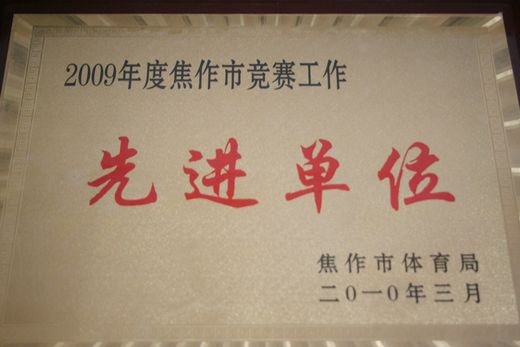 2009年度焦作市竞赛工作
先进单位
焦作市体育局
二〇一〇年三月